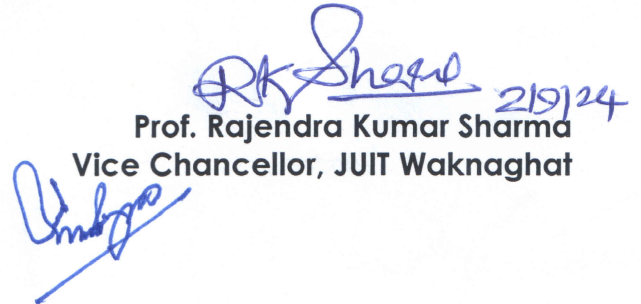 RK Sharma 2/9/24
Prof. Rajendra Kumar Sharma
Vice Chancellor, JUIT Waknaghat